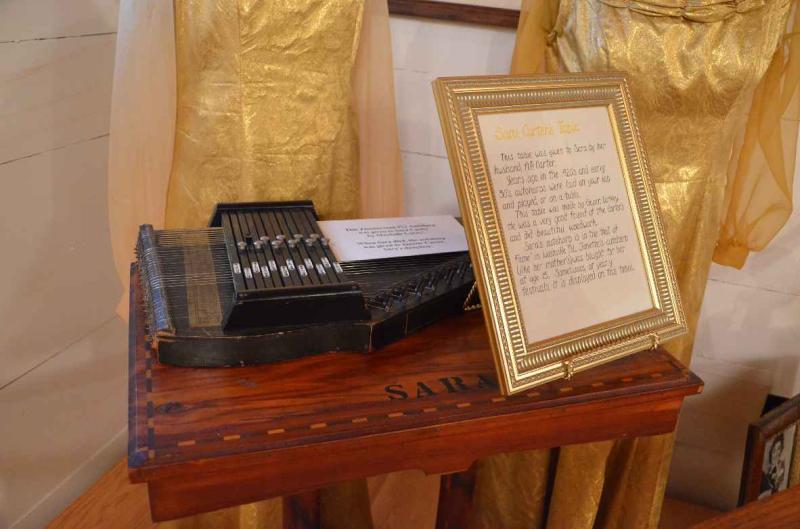 Sara Carter's Table
This table was given to Sara by her
husband, A.P. Carter.
Years ago in the 1920s and early
30's autoharps were laid on your lap
and played, or on a table.
This table was made by
He was a very good friend of the Carter's
and did beautiful woodwork.
Sara's autoharp is in the Hall of
Fame in Nashville, TN. Janette's autoharp
(like her mother's) was bought for her
at age 15. Sometimes, at yearly
festivals, it is displayed on this table.
This
was given to
by Maybelle Carter.
When Sara died, the autoharp
was given to
Sara's daughter.
SARA